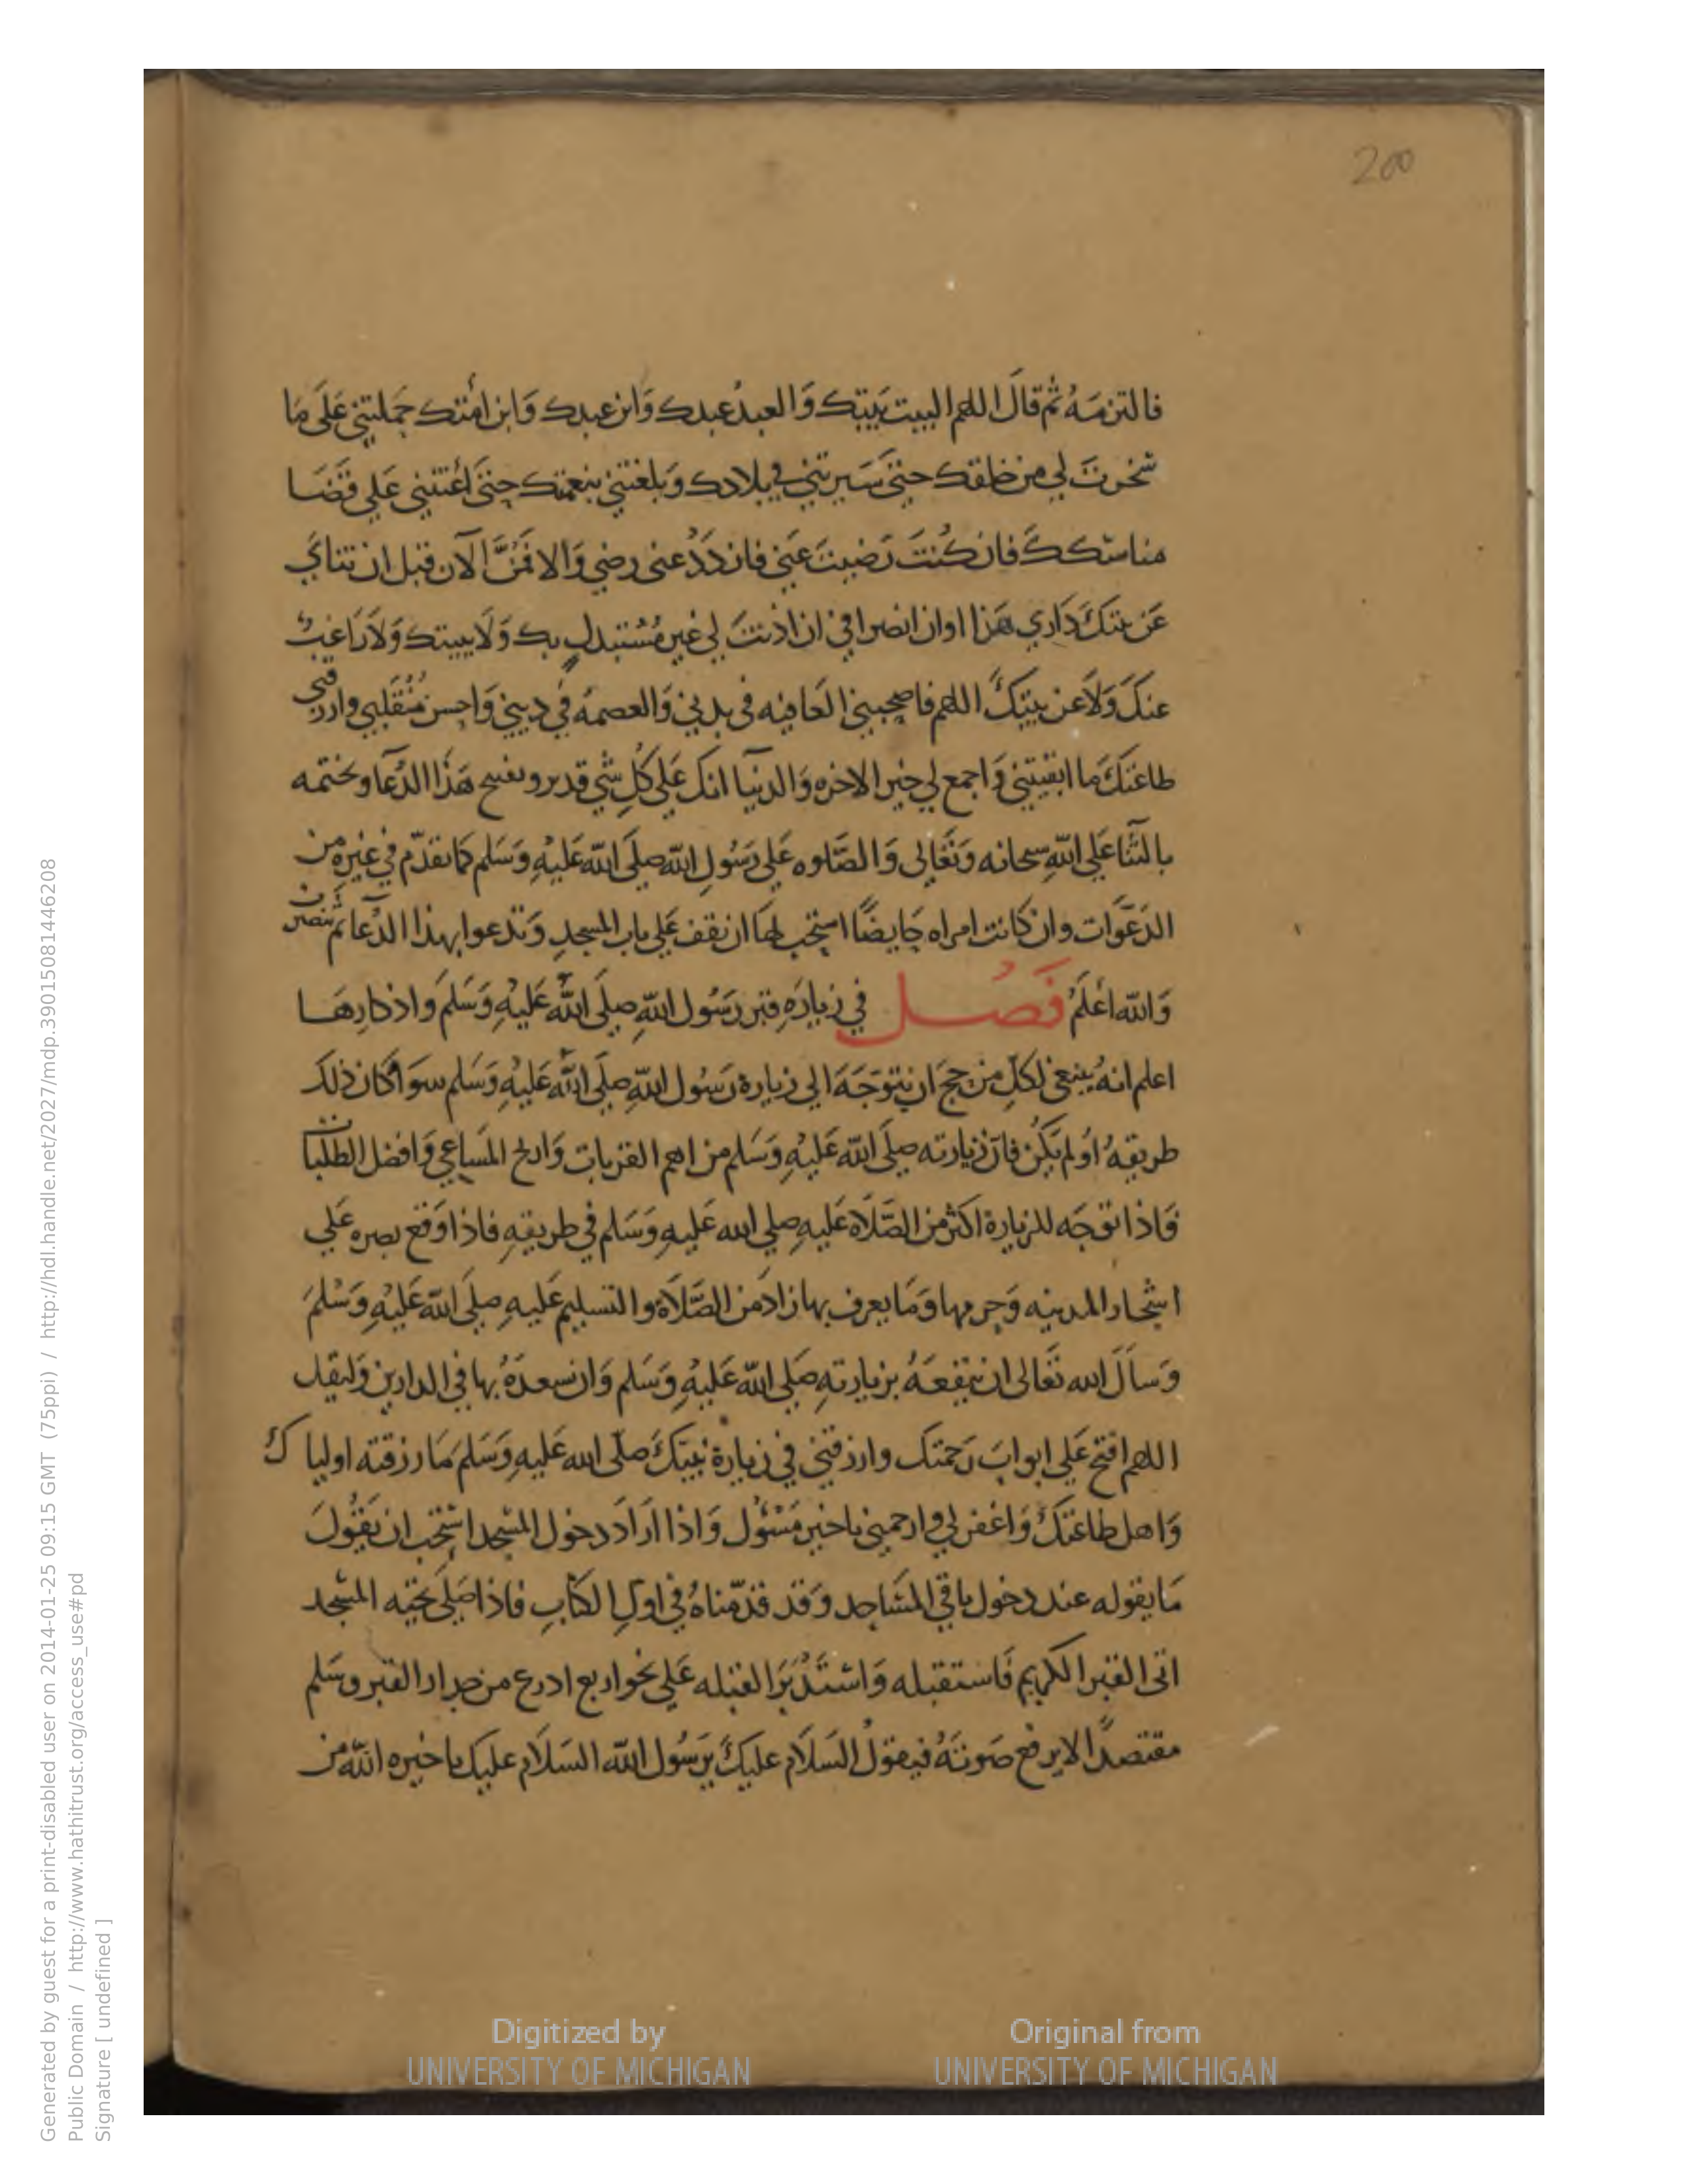 200
فالتزمَهُ ثم قالَ اللهم البيت بَيتك وَالعبدُ عبدك وَابن عبدك وَابن امَتك حَملتني عَلَى مَا
سَخرتَ لي من خلقك حتى سَيرتني في بلادك وَبلغتني بنعمتك حتى أعنتني عَلي قضَا
مناسكك فان كُنتَ رَضيتَ عَني فازدَدْ عنى رضي وَالا فمُنَّ الآن قبل ان تناي
عَن بيتكَ دَاري هَذا اوان انصرافي ان اذنتَ لي غير مُستبدلٍ بك وَلا ببيتك وَلا رَاغبٌ
عنكَ وَلا عن بيتِكَ اللهم فاصحبني العَافيه فى بدني وَالعصمَه في ديني وَاحسن مُنقَلبي وارزقني
طاعتكَ مَا ابقيتني وَاجمع لي خير الاخره وَالدنيآ انك عَلي كُلِ شي قدير ويفتتح هَذا الدُعا ويختمه
بالثَّنا عَلي اللهِ سبحانه وَتعَالى وَالصَّلوه عَلي رَسُولِ الله صلَى الله عَليْهِ وَسَلم كما تقدّم في غيره من
الدَعَوات وان كانت امراه حَايضًا استحب لهَا ان تقف عَلي باب المسجدِ وَتدعوا بهذا الدُعا ثم تنصرف
وَالله اعْلمُ فَصُل في زيارَهِ قبر رَسُول اللهِ صلَى اللهُ عَليْهِ وَسَلمَ واذكارِهَا
اعلم انهُ ينبغي لكلِ من حج ان يتوَجَهَ الي زيارة رَسُول اللهِ صلَى اللهُ عَليْهِ وَسَلم سوَا كان ذلك
طريقهُ اوُ لم يَكُن فان زيارته صلَى الله عَليْهِ وَسَلم من اهم القربات وَاربح المَسَاعي وَافضل الطلبات
فاذا توَجَه للزيارة اكثر من الصَّلاه عَليهِ صلي الله عَليهِ وَسَلم في طريقهِ فاذا وَقع بصره عَلي
اشجار المدينه وَحرمها وَمَا يعرف بها زادَ من الصَّلاة والتسليم عَليهِ صلَى الله عَليْهِ وَسْلمَ
وَسأل الله تعَالى ان ينفعَهُ بزيارتهِ صَلي الله عَليْهِ وَسَلم وَان يسعدَهُ بها في الدارين وَليقل
اللهم افتح عَلي ابوابَ رَحمتك وارزقني في زيارة نبيّكَ صلّى الله عَليهِ وَسَلم مَا رزقته اولياك
وَاهل طاعتكَ وَاغفر لي وارحمني ياخير مَسْؤُل وَاذا ارَادَ دخول المسْجد استحب ان يَقُولَ
مَا يقوله عند دخول باقي المسَاجد وَقد قدّمناهُ في اولِ الكتابِ فاذا صَلَى تحيّه المسْجد
اتى القبر الكريم فَاستقبله وَاستَدْبَرَ القبله عَلي نحو اربع ادرع من جدار القبر وسَلم
مقتصدًا لا يرفع صَوتَهُ فيقولُ السَلاَم عليكَ يَرَسُول الله السَلاَم عليك ياخيره اللهِ من
Digitized by
UNIVERSITY OF MICHIGAN
Original from
UNIVERSITY OF MICHIGAN
Generated by guest for a print-disabled user on 2014-01-25 09:15 GMT (75ppi) / http://hdl.handle.net/2027/mdp.39015081446208
Public Domain / http://www.hathitrust.org/access_use#pd
Signature [ undefined ]